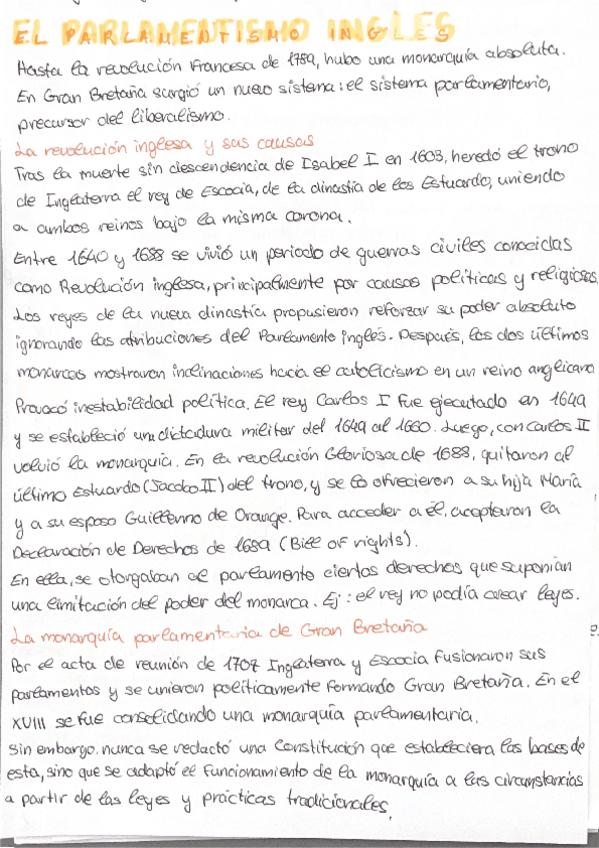 EL PARLAMENTISMO INGLES
Hasta la revolución Francesa de 1789, hubo una monarquía absoluta.
En Gran Bretaña surgió un nuevo sistema: el sistema parlamentario,
precursor del liberalismo.
La revolución inglesa y sus causas
Tras la muerte sin descendencia de Isabel I en 1603, heredó el trono
de Inglaterra el rey de Escocia, de la dinastía de los Estuardo, uniendo
a ambos reinos bajo la misma corona.
Entre 1640 y 1688 se vivió un periodo de guerras civiles conocidas
como Revolución inglesa, principalmente por causas políticas y religiosas
Los reyes de la nueva dinastía propusieron reforzar su poder absoluto
ignorando las atribuciones del Parlamento inglés. Después, los dos últimos
monarcas mostraron inclinaciones hacia el catolicismo en un reino anglicano
Provocó inestabilidad política. El rey Carlos I fue ejecutado en 1649
y se estableció una dictadura militar del 1649 al 1660. Luego, con Carlos II
volvió la monarquía. En la revolución Gloriosa de 1688, quitaron al
último Estuardo (Jacobo II) del trono, y se lo ofrecieron a su hija María
y a su esposo Guillermo de Orange. Para acceder a él, aceptaron la
Declaración de Derechos de 1689 (Bill of rights).
En ella, se otorgaban al parlamento ciertos derechos que suponían
una limitación del poder del monarca. Ej: el rey no podía crear leyes.
La monarquía parlamentaria de Gran Bretaña
Por el acta de reunión de 1707 Inglaterra y Escocia fusionaron sus
parlamentos y se unieron políticamente formando Gran Bretaña. En el
XVIII se fue consolidando una monarquía parlamentaria.
Sin embargo, nunca se redactó una Constitución que estableciera las bases de
esta, sino que se adaptó el funcionamiento de la monarquía a las circunstancias
a partir de las leyes y prácticas tradicionales.